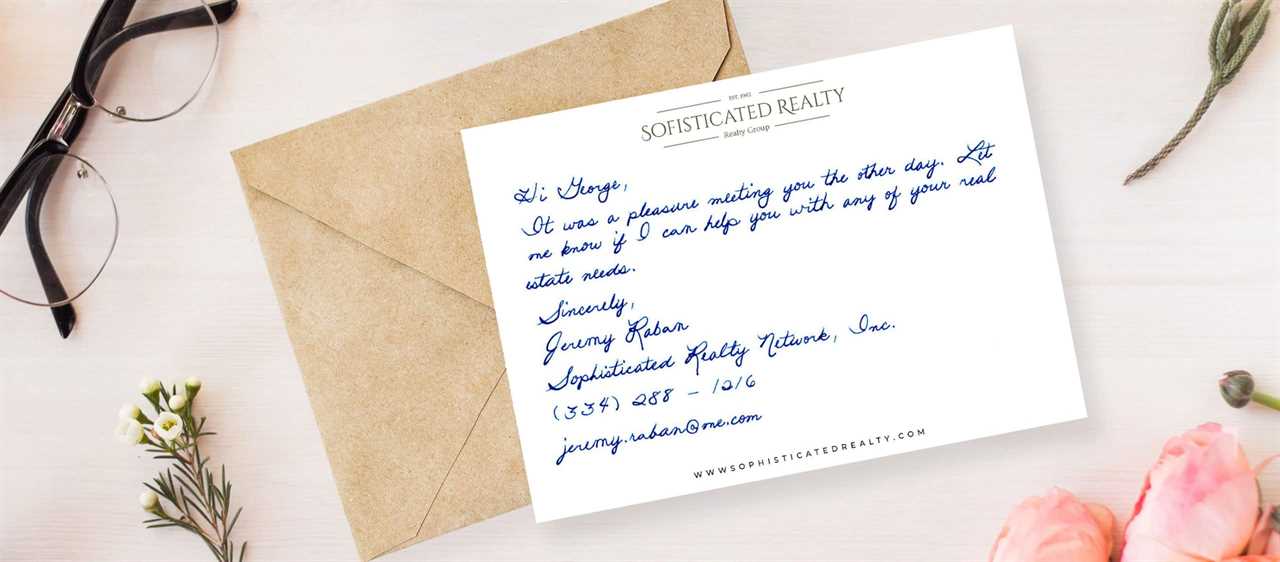 EST. 1983
SOFISTICATED REALTY
Realty Group
Hi George,
It was a pleasure meeting you the other day. Let
me know if I can help you with any of your real
estate needs.
Sincerely,
Jeremy Raban
Sophisticated Realty Network, Inc.
(334) 288 - 1216
jeremy.raban@me.com
WWWSOPHISTICATEDREALTY.COM